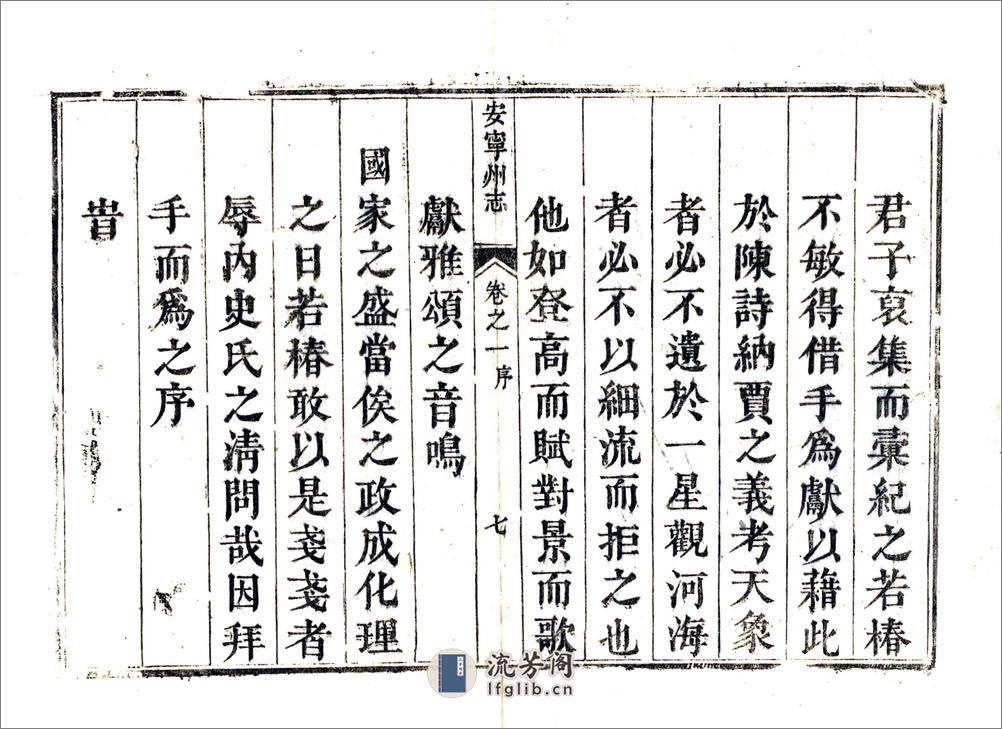 君子裒集而彙紀之若椿
不敏得借手爲獻以藉此
於陳詩納賈之義考天象
者必不遺於一星觀河海
者必不以細流而拒之也
他如登高而賦對景而歌
安寧州志 卷之一 序 七
獻雅頌之音鳴
國家之盛當俟之政成化理
之日若椿敢以是戔戔者
辱內史氏之清問哉因拜
手而爲之序
旹
流芳阁
lfglib.cn